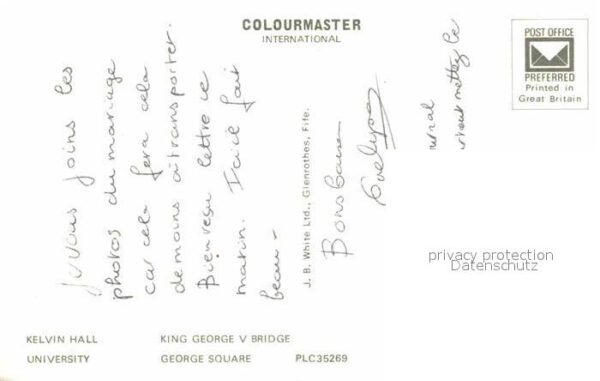 COLOURMASTER
INTERNATIONAL
POST OFFICE
PREFERRED
Printed in
Great Britain
Je vous joins les
photos du mariage
car cela fera cela
de moins à transporter.
Bien reçu lettre ce
matin. Ici il fait
beau -
J. B. White Ltd., Glenrothes, Fife.
Bons baisers
mettez le
privacy protection
Datenschutz
KELVIN HALL
KING GEORGE V BRIDGE
UNIVERSITY
GEORGE SQUARE
PLC35269